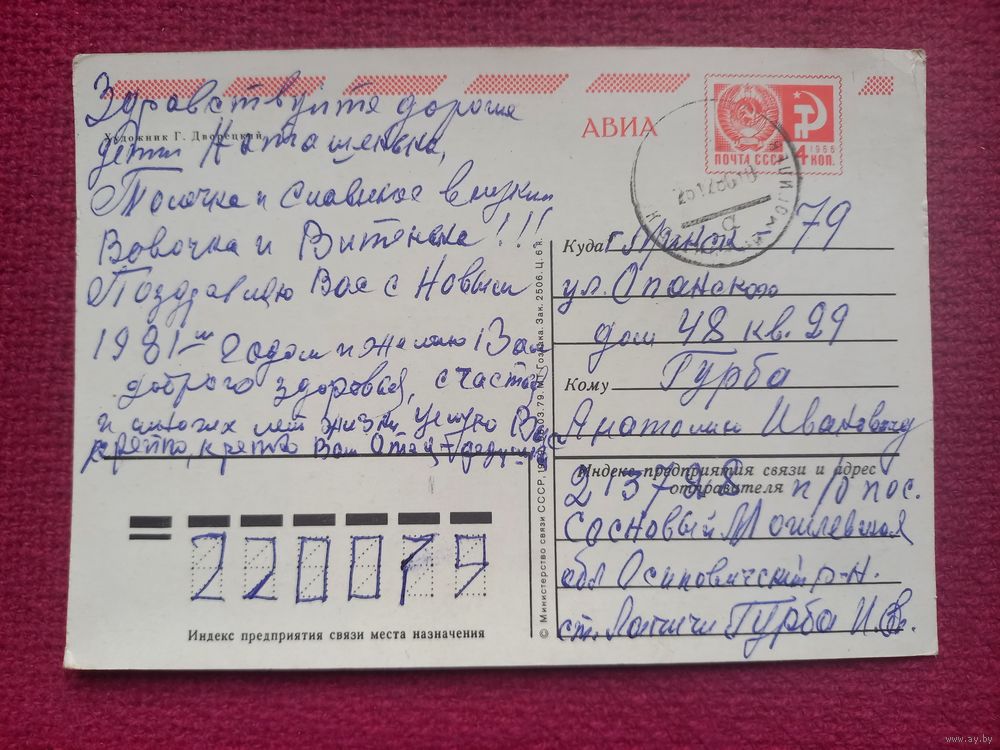 Здравствуйте дорогие
Художник Г. Дворецкий
дети Наташенька,
Толечка и Славик и внуки
Вовочка и Витенька!!!
Поздравляю Вас с Новым
1981-м годом и желаю Вам
доброго здоровья, счастья
и многих лет жизни целую Вас
крепко, крепко Ваш Отец + дедушка
АВИА
ПОЧТА СССР
1966
4 КОП.
Куда г. Минск 79
ул. Опанского
дом 48 кв. 29
Кому Гурба
Анатолию Ивановичу
Индекс предприятия связи и адрес
отправителя
п/о пос.
Сосновый Могилевская
обл Осиповичский р-н.
ст. Лапичи Гурба И.
220079
Индекс предприятия связи места назначения
© Министерство связи СССР, 03.79. МТ Гознака. Зак. 2506. Ц. 6 к.
www.ay.by